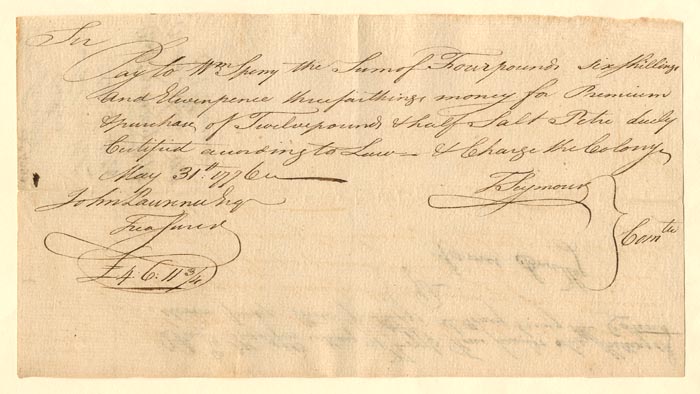 Sir
Pay to Wm Speny the Sum of Four pounds Six Shillings
and Eleven pence three farthings money for Premium
& purchase of Twelve pounds & half Salt Petre duely
Certified according to Law & Charge the Colony
May 31st 1776
John Lawrence Esqr
Treasurer
T Seymour
Comtee
£4.6.11 3/4